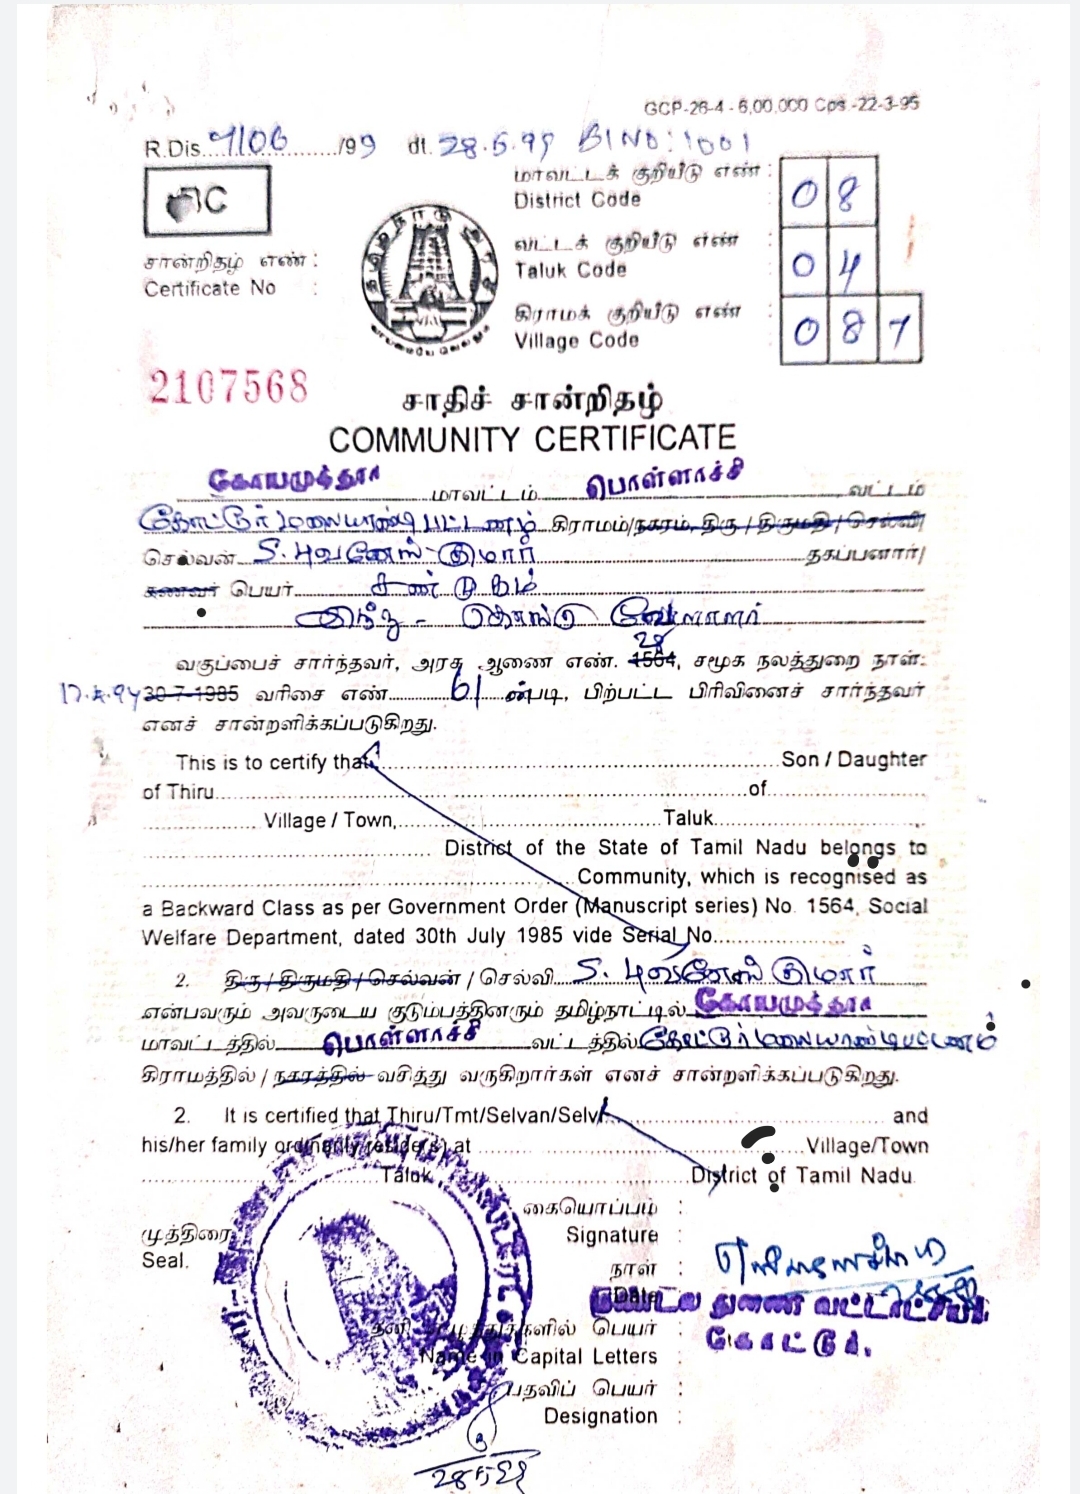 GCP-26-4 - 6,00,000 Cps -22-3-95
R.Dis. 7106 /99 dt. 28.5.99 BI NO: 1001
மாவட்டக் குறியீடு எண் :
District Code 08
சான்றிதழ் எண் :
Certificate No :
வட்டக் குறியீடு எண் :
Taluk Code 04
கிராமக் குறியீடு எண் :
Village Code 087
2107568
சாதிச் சான்றிதழ்
COMMUNITY CERTIFICATE
கோயமுத்தூர் மாவட்டம் பொள்ளாச்சி வட்டம்
கோட்டூர் மலையாண்டிபட்டணம் கிராமம்/நகரம், திரு / திருமதி / செல்வி/
செல்வன் S. புவனேஸ் குமார் தகப்பனார்/
கணவர் பெயர் சண்முகம்
இந்து - கொங்கு வேளாளர்
28
வகுப்பைச் சார்ந்தவர், அரசு ஆணை எண். 1564, சமூக நலத்துறை நாள்:
30-7-1985 வரிசை எண் 61 ன்படி, பிற்பட்ட பிரிவினைச் சார்ந்தவர்
எனச் சான்றளிக்கப்படுகிறது.
This is to certify that Son / Daughter
of Thiru of
Village / Town, Taluk
District of the State of Tamil Nadu belongs to
Community, which is recognised as
a Backward Class as per Government Order (Manuscript series) No. 1564, Social
Welfare Department, dated 30th July 1985 vide Serial No.
2. திரு / திருமதி / செல்வன் / செல்வி S. புவனேஸ் குமார்
என்பவரும் அவருடைய குடும்பத்தினரும் தமிழ்நாட்டில் கோயமுத்தூர்
மாவட்டத்தில் பொள்ளாச்சி வட்டத்தில் கோட்டூர் மலையாண்டிபட்டணம்
கிராமத்தில் / நகரத்தில் வசித்து வருகிறார்கள் எனச் சான்றளிக்கப்படுகிறது.
2. It is certified that Thiru/Tmt/Selvan/Selvi and
his/her family ordinarily reside(s) at Village/Town
Taluk District of Tamil Nadu.
கையொப்பம் :
முத்திரை
Signature :
Seal.
நாள் :
Date
துணை வட்டாட்சியர்
தனி எழுத்துகளில் பெயர் :
கோட்டூர்.
Name in Capital Letters :
பதவிப் பெயர் :
Designation :